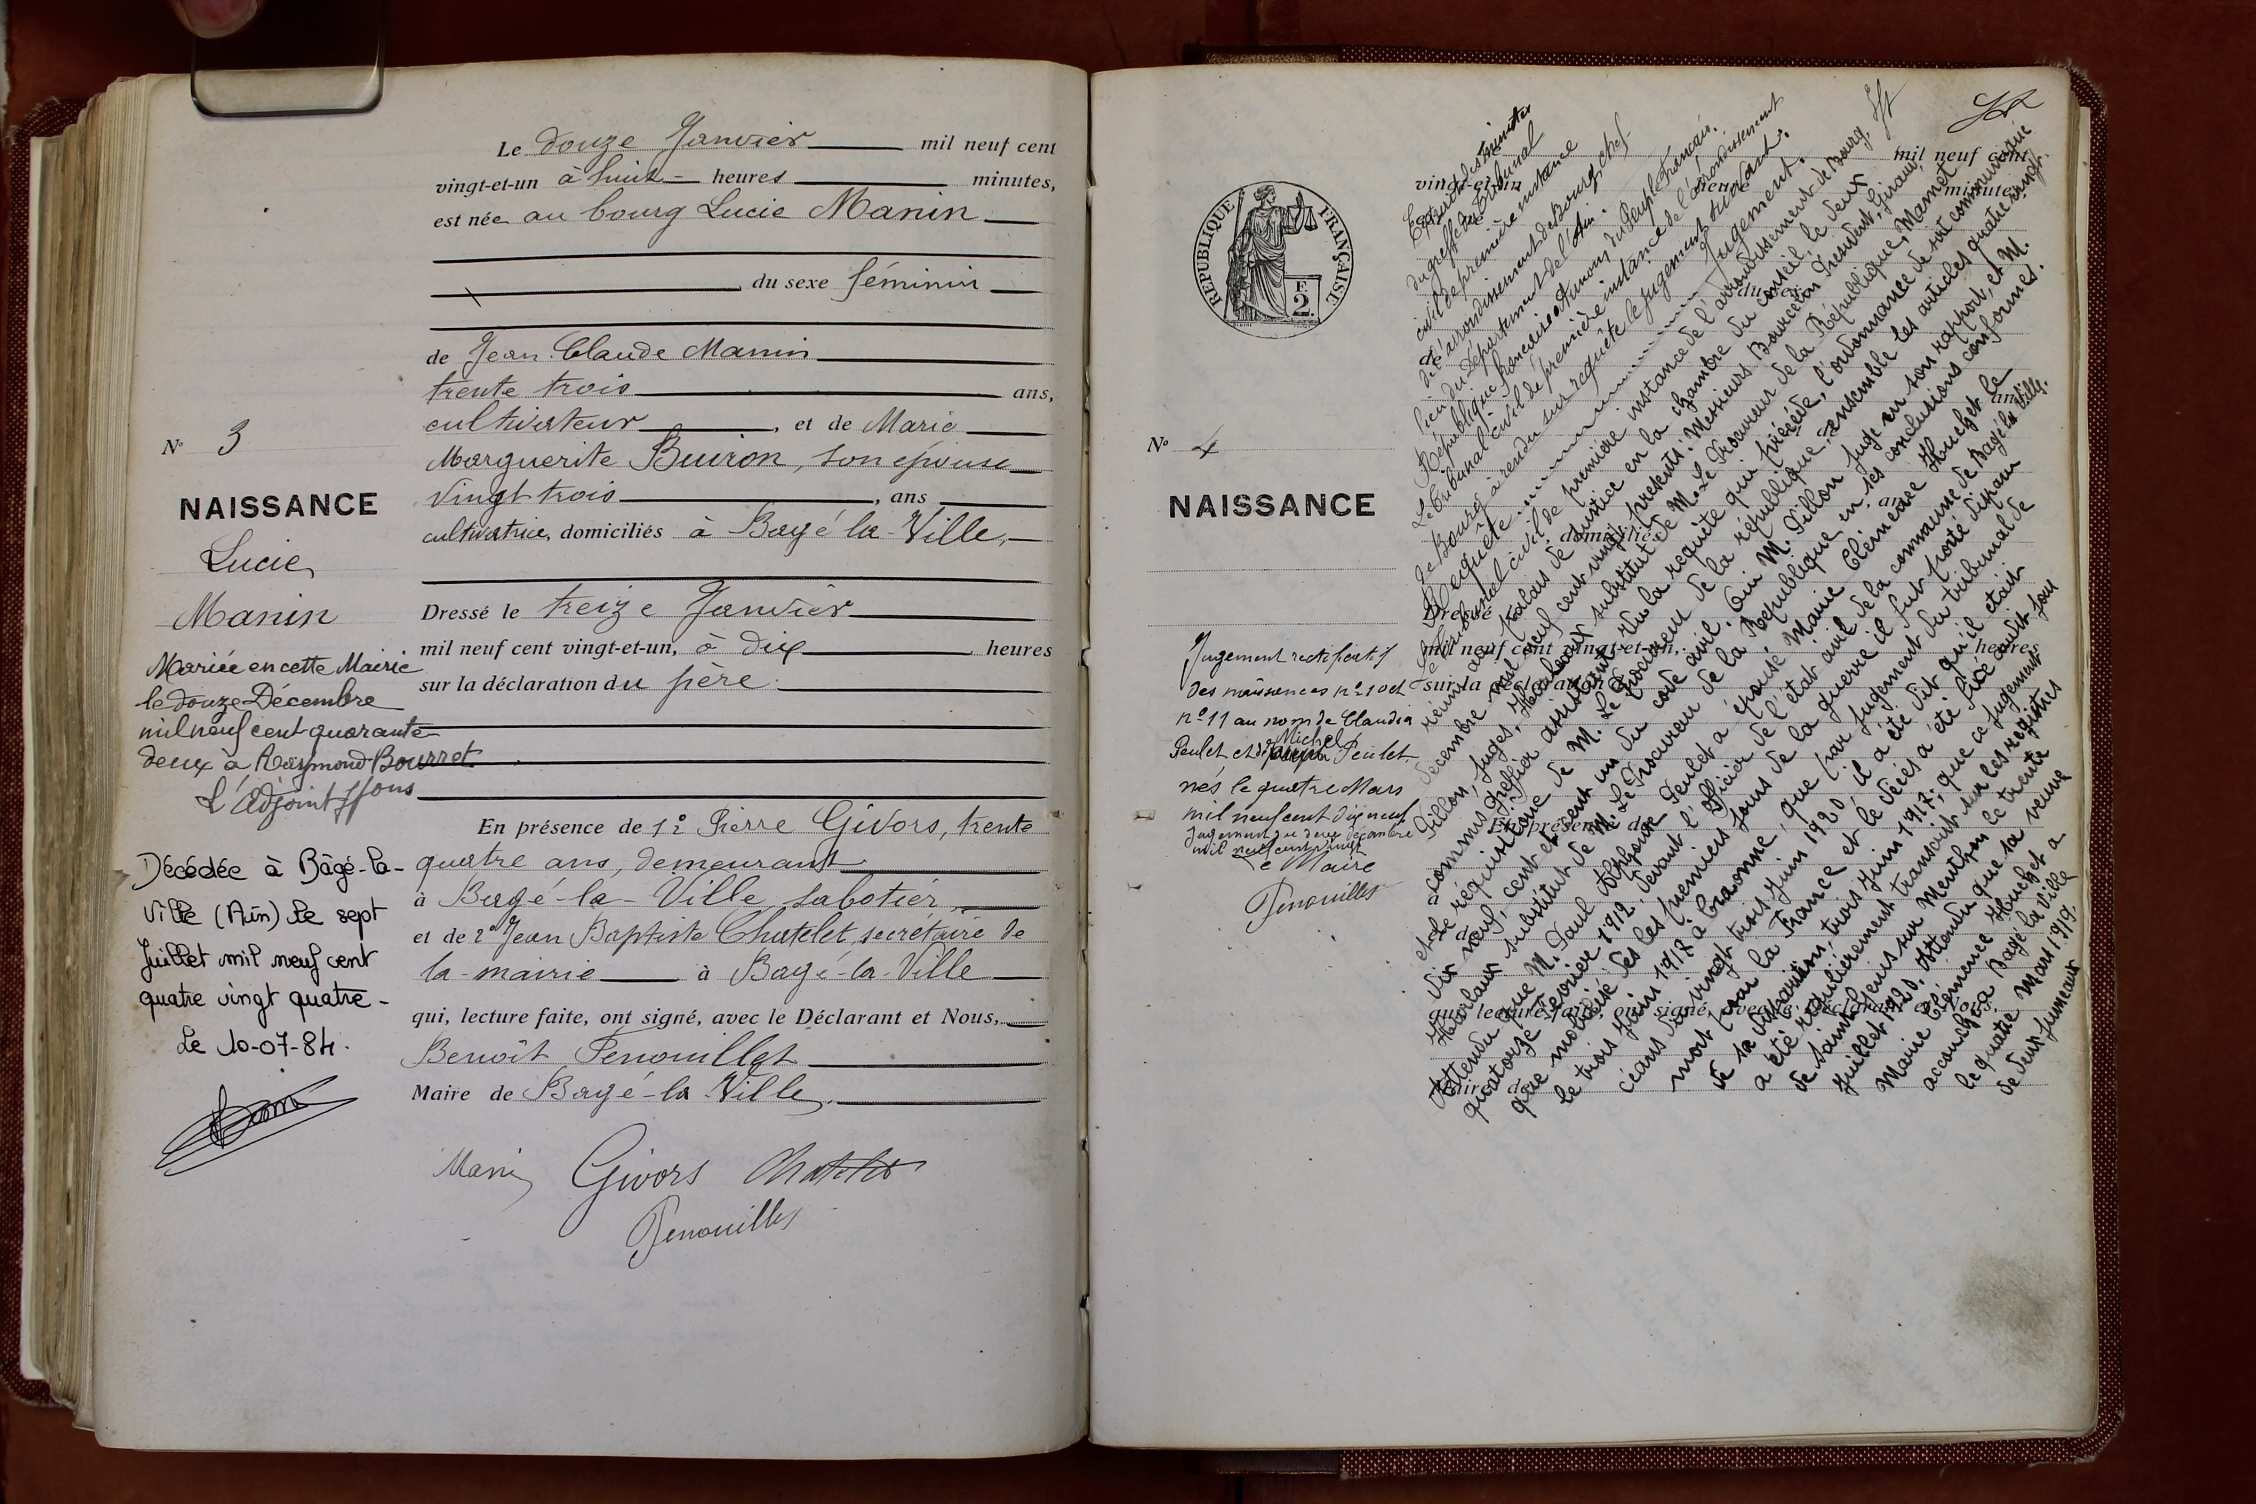 Le douze Janvier mil neuf cent
vingt-et-un à huit heures minutes,
est née au bourg Lucie Manin
du sexe féminin
de Jean Claude Manin
trente trois ans,
cultivateur, et de Marie
Marguerite Buiron, son épouse
vingt trois, ans
cultivatrice, domiciliés à Bagé-la-Ville,
Dressé le treize Janvier
mil neuf cent vingt-et-un, à dix heures
sur la déclaration du père.
En présence de 1° Pierre Givors, trente
quatre ans, demeurant
à Bagé-la-Ville, sabotier,
et de 2° Jean Baptiste Chatelet, secrétaire de
la mairie à Bagé-la-Ville
qui, lecture faite, ont signé, avec le Déclarant et Nous,
Benoît Fenouillet
Maire de Bagé-la-Ville.
Manin Givors Chatelet
Fenouillet
N° 3
NAISSANCE
Lucie
Manin
Mariée en cette Mairie
le douze Décembre
mil neuf cent quarante-
deux à Raymond Bourret
L'Adjoint
Décédée à Bâgé-la-
Ville (Ain) le sept
Juillet mil neuf cent
quatre vingt quatre-
Le 10-07-84.
RÉPUBLIQUE FRANÇAISE
2 F.
N° 4
NAISSANCE
Jugement rectificatif
des naissances n° 10 et
n° 11 au nom de Claudia
Peulet et de Michel Peulet
nés le quatre Mars
mil neuf cent dix neuf
Jugement du deux décembre
mil neuf cent vingt
Le Maire
Fenouillet
mil neuf cent
vingt-et-un heures minutes
du sexe
de
ans
ans
domiciliés
Dressé
mil neuf cent vingt-et-un, heures
sur la déclaration d
En présence de
à
et de
qui, lecture faite, ont signé, avec le Déclarant et Nous,
Maire de
Extrait des minutes
du greffe du Tribunal
civil de première instance
de l'arrondissement de Bourg, chef-
lieu du Département de l'Ain.
République française. Au nom du Peuple Français.
Le Tribunal civil de première instance de l'arrondissement
de Bourg a rendu sur requête le jugement suivant.
Requête Jugement.
Le Tribunal civil de première instance de l'arrondissement de Bourg,
réuni au palais de Justice en la chambre du conseil, le deux
décembre mil neuf cent vingt, présents: Messieurs Président,
Fillon, juges, substitut de M. Le Procureur de la République, Mamet
commis greffier assistant. Vu la requête qui précède, l'ordonnance de soit communiqué
et le réquisitoire de M. Le Procureur de la république, ensemble les articles quatre vingt
dix neuf, cent et cent un du code civil. Ouï M. Fillon juge en son rapport, et M.
substitut de M. Le Procureur de la République en ses conclusions conformes.
Attendu que M. Paul Alphonse Peulet a épousé Marie Clémence Huchet le
quatorze Février 1912, devant l'officier de l'état civil de la commune de Bagé la Ville.
que mobilisé dès les premiers jours de la guerre il fut porté disparu
le trois Juin 1917 à Craonne, que par jugement du tribunal de
céans du vingt trois Juin 1920 il a été dit qu'il était
mort pour la France et le décès a été fixé audit jour
de sa disparition, trois Juin 1917; que ce jugement
a été régulièrement transcrit sur les registres
de Saint Jean sur Menthon le trente
Juillet 1920. Attendu que sa veuve
Marie Clémence Huchet a
accouché à Bagé la Ville
le quatre Mars 1919.
de deux jumeaux